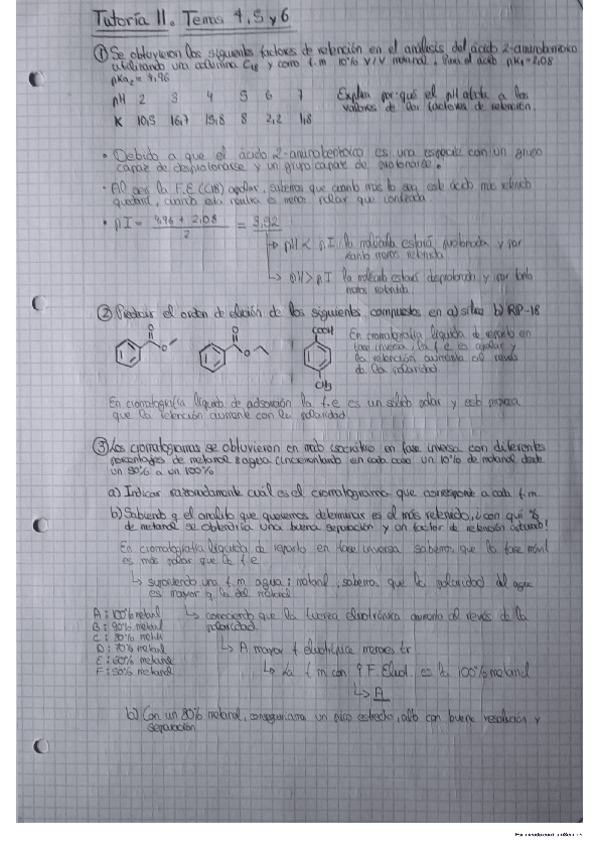 Tutoría 11. Temas 4, 5 y 6
① Se obtuvieron los siguientes factores de retención en el análisis del ácido 2-aminobenzoico
utilizando una columna C18 y como f.m 10% V/V metanol. Para el ácido pK1=2,08
pKa2 = 4,96
pH 2 3 4 5 6 7
K 10,5 16,7 15,8 8 2,2 1,8
Explica por qué el pH afecta a los
valores de los factores de retención.
• Debido a que el ácido 2-aminobenzoico es una especie con un grupo
capaz de desprotonarse y un grupo capaz de protonarse.
• Al ser la F.E (C18) apolar, sabemos que cuanto más lo sea este ácido más retenido
quedará, cuando está neutra es menos polar que cargada.
• pI = 4,96 + 2,08 / 2 = 3,92
→ pH < pI la molécula estará protonada y por
tanto menos retenida
→ pH > pI la molécula estará desprotonada y por tanto
menos retenida.
② Predecir el orden de elución de los siguientes compuestos en a) sílice b) RP-18
O
O
O
O
COOH
CH3
En cromatografía líquida de reparto en
fase inversa, la f.e es apolar y
la retención aumenta al revés
de la polaridad.
En cromatografía líquida de adsorción la f.e es un sólido polar y esto
que la retención aumente con la polaridad.
③ Los cromatogramas se obtuvieron en modo isocrático en fase inversa con diferentes
porcentajes de metanol y agua (incrementando en cada caso un 10% de metanol desde
un 50% a un 100%
a) Indicar razonadamente cuál es el cromatograma que corresponde a cada f.m.
b) Sabiendo q el analito que queremos determinar es el más retenido, ¿con qué %
de metanol se obtendría una buena separación y un factor de retención
En cromatografía líquida de reparto en fase inversa sabemos que la fase móvil
es más polar que la f.e
↳ suponiendo una f.m agua: metanol, sabemos que la polaridad del agua
es mayor q la del metanol
A: 100% metanol
B: 90% metanol
C: 80% metanol
D: 70% metanol
E: 60% metanol
F: 50% metanol
↳ conociendo que la fuerza aumenta al revés de la
polaridad.
↳ A mayor f menores tr
↳ La f.m con ↑ F. Eluot. es la 100% metanol
↳ A
b) Con un 80% metanol, conseguiríamos un pico estrecho, alto con buena resolución y
separación